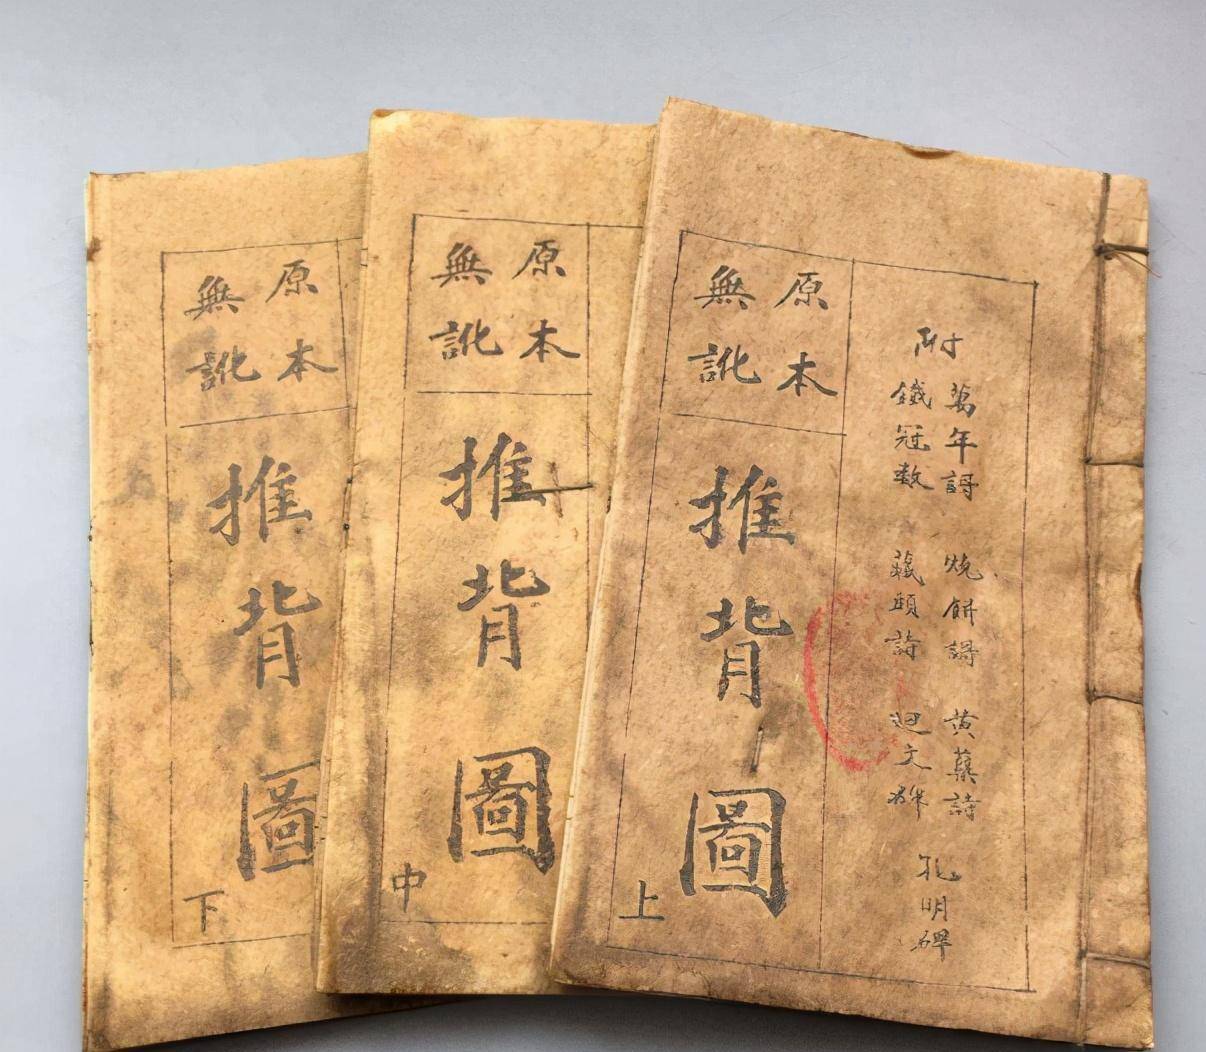 附
萬年謌 燒餅謌 黄蘗詩
鐵冠數 藏頭詩
孔明碑
原本
無訛
推背圖
上
原本
無訛
推背圖
中
原本
無訛
推背圖
下